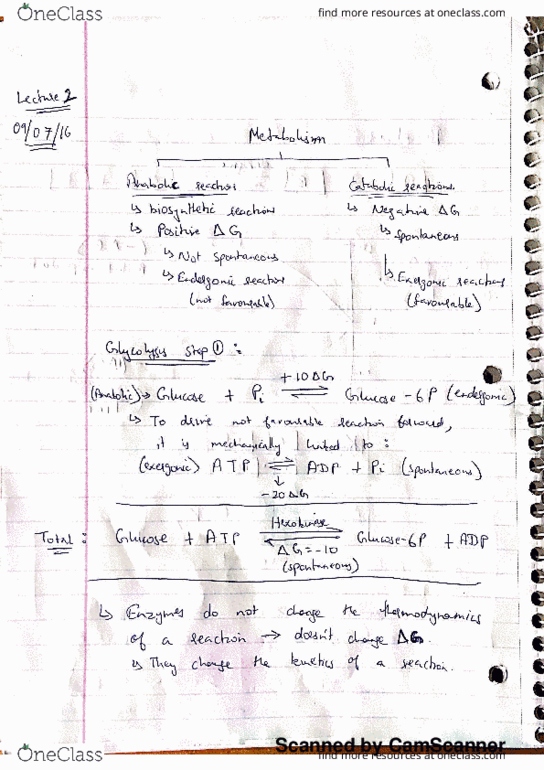 OneClass
find more resources at oneclass.com
Lecture 2
09/07/16
Metabolism
Anabolic reaction
↳ biosynthetic reactions
↳ Positive ΔG
↳ Not spontaneous
↳ Endergonic reaction
(not favourable)
Catabolic reactions
↳ Negative ΔG
↳ spontaneous
↳ Exergonic reactions
(favourable)
Glycolysis step ① :
+10 ΔG
(Anabolic) → Glucose + Pi ⇌ Glucose-6P (endergonic)
↳ To drive not favourable reaction forward,
it is mechanically linked to :
(exergonic) ATP ⇌ ADP + Pi (spontaneous)
↓
-20 ΔG
Total : Glucose + ATP ⇌ Glucose-6P + ADP
Hexokinase
ΔG = -10
(spontaneous)
↳ Enzymes do not change the thermodynamics
of a reaction → doesn't change ΔG
↳ They change the kinetics of a reaction.
Scanned by CamScanner
OneClass
find more resources at oneclass.com